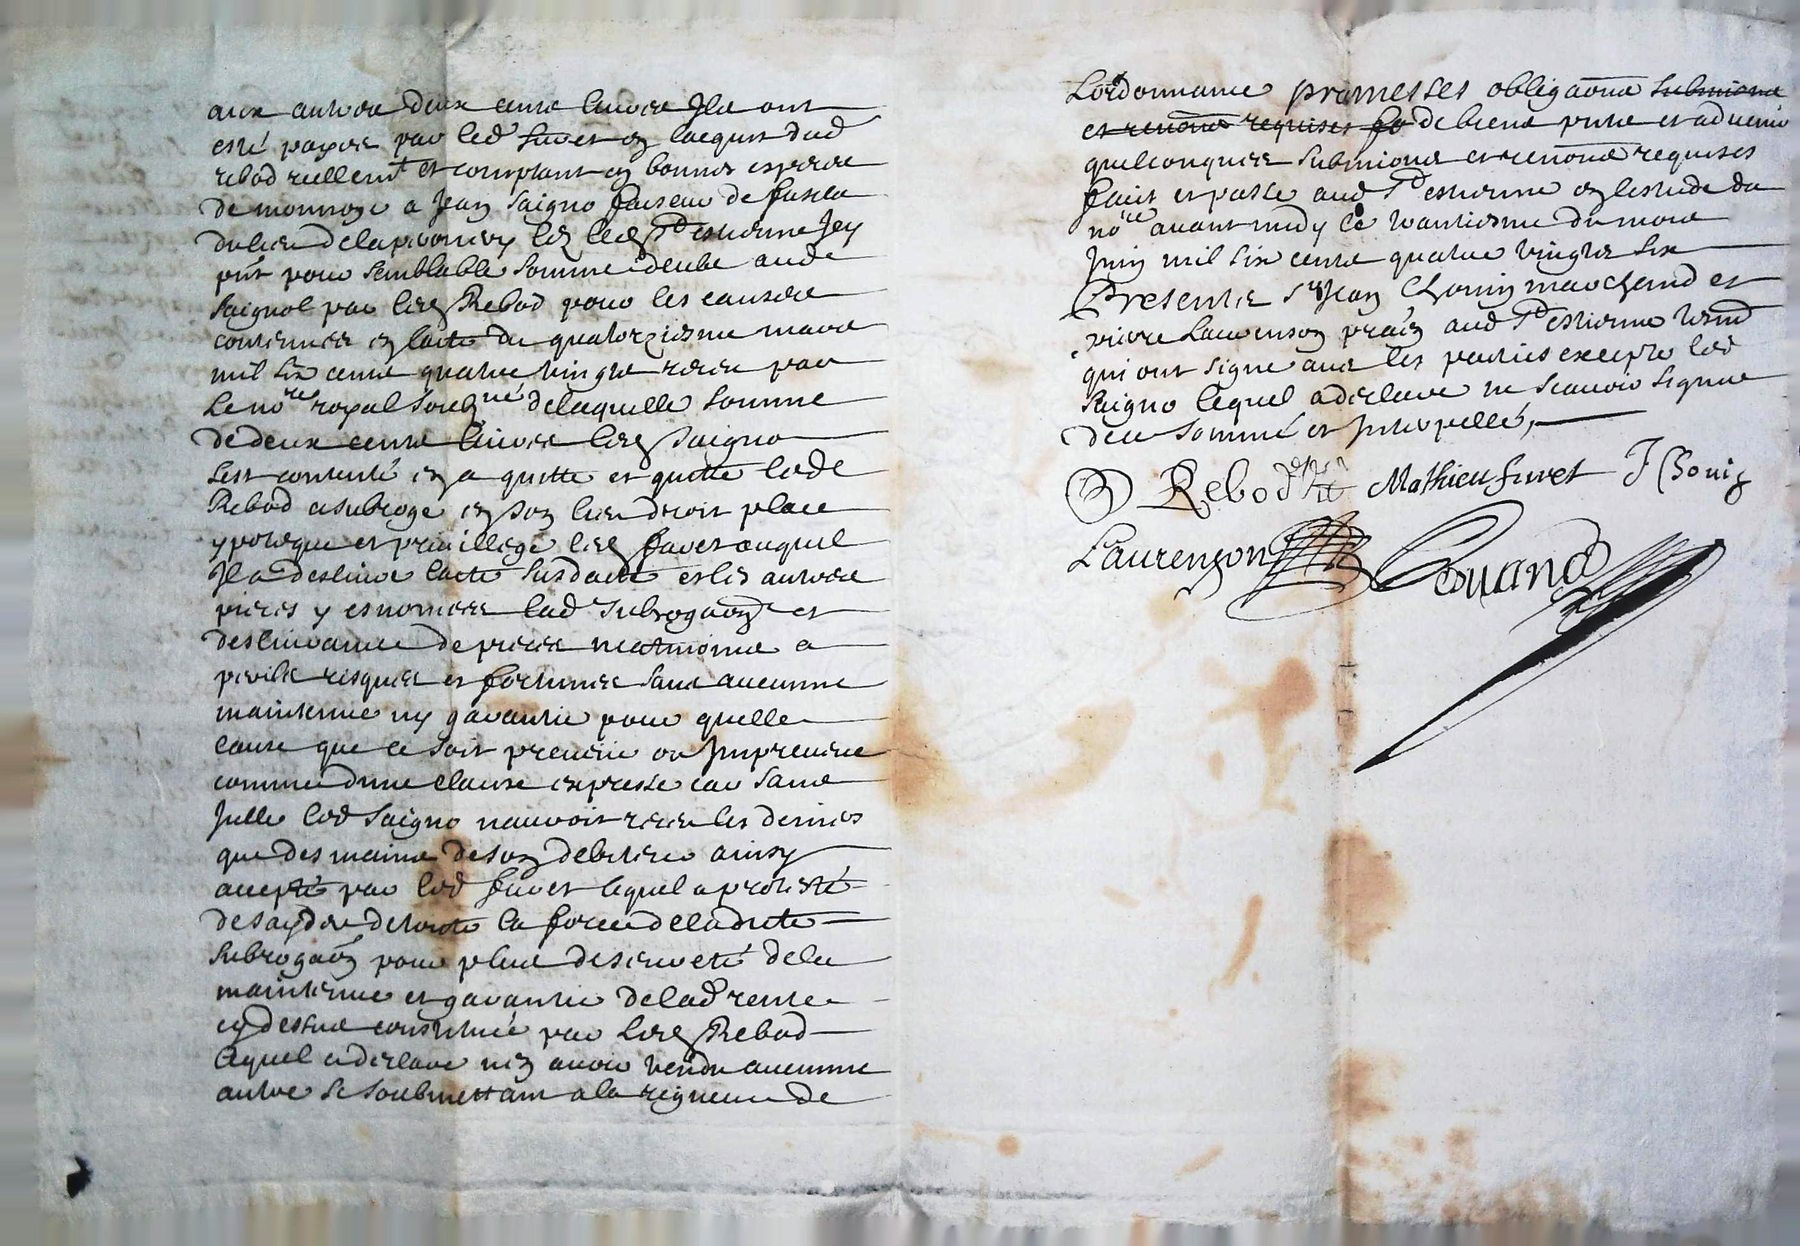 aux autres deux cents livres Ils ont
esté payés par led furet en lacquit dud
rebod reellemt et comptant en bonnes especes
de monnoye a Jean Saigno faiseur de
du lieu de led St estienne Jcy
pnt pour semblable somme deube aud
Saignol par led Rebod pour les causes
contenues en lacte du quatorziesme mars
mil six cents quatre vingts par
le nore royal soubzné de laquelle somme
de deux cents livres led Saigno
sest contenté en a quitte et quitte led
Rebod a subrogé en son lieu droit place
ypoteque et privillege led furet auquel
Jl a deslivré lacte susdatté et les autres
pieces y enoncées lad subrogaon et
deslivrance de pieces neatmoins a
perils risques et fortunes sans aucunne
maintenue ny garantie pour quelle
cause que ce soit preveüe ou Jmpreveüe
comme dune clause expresse car sans
Jcelle led Saigno nauroit les deniers
que des mains de son debiteur ainsy
accepté par led furet lequel a protesté
de sayder de toute la force de ladicte
subrogaon pour plus de seureté de la
maintenue et garantie de lad rente
cy dessus constituée par led Rebod
lequel a declaré nen avoir vendu aucunne
autre se soubmettant a la rigueur de
Lordonnance promesses obligaons submions
et renons requises de biens pnts et advenir
quelconques submions et renons requises
fait et passé aud St estienne en lestude du
nore avant midy le du mois
Juin mil six cents quatre vingts six
Presents sr Jean Thonin marchand et
pierre Laurenson praen aud St estienne
qui ont signé avec les parties excepté led
Saigno lequel a declaré ne scavoir signer
de ce sommé et Jnterpellé,
Rebod Mathieu furet
Laurenson